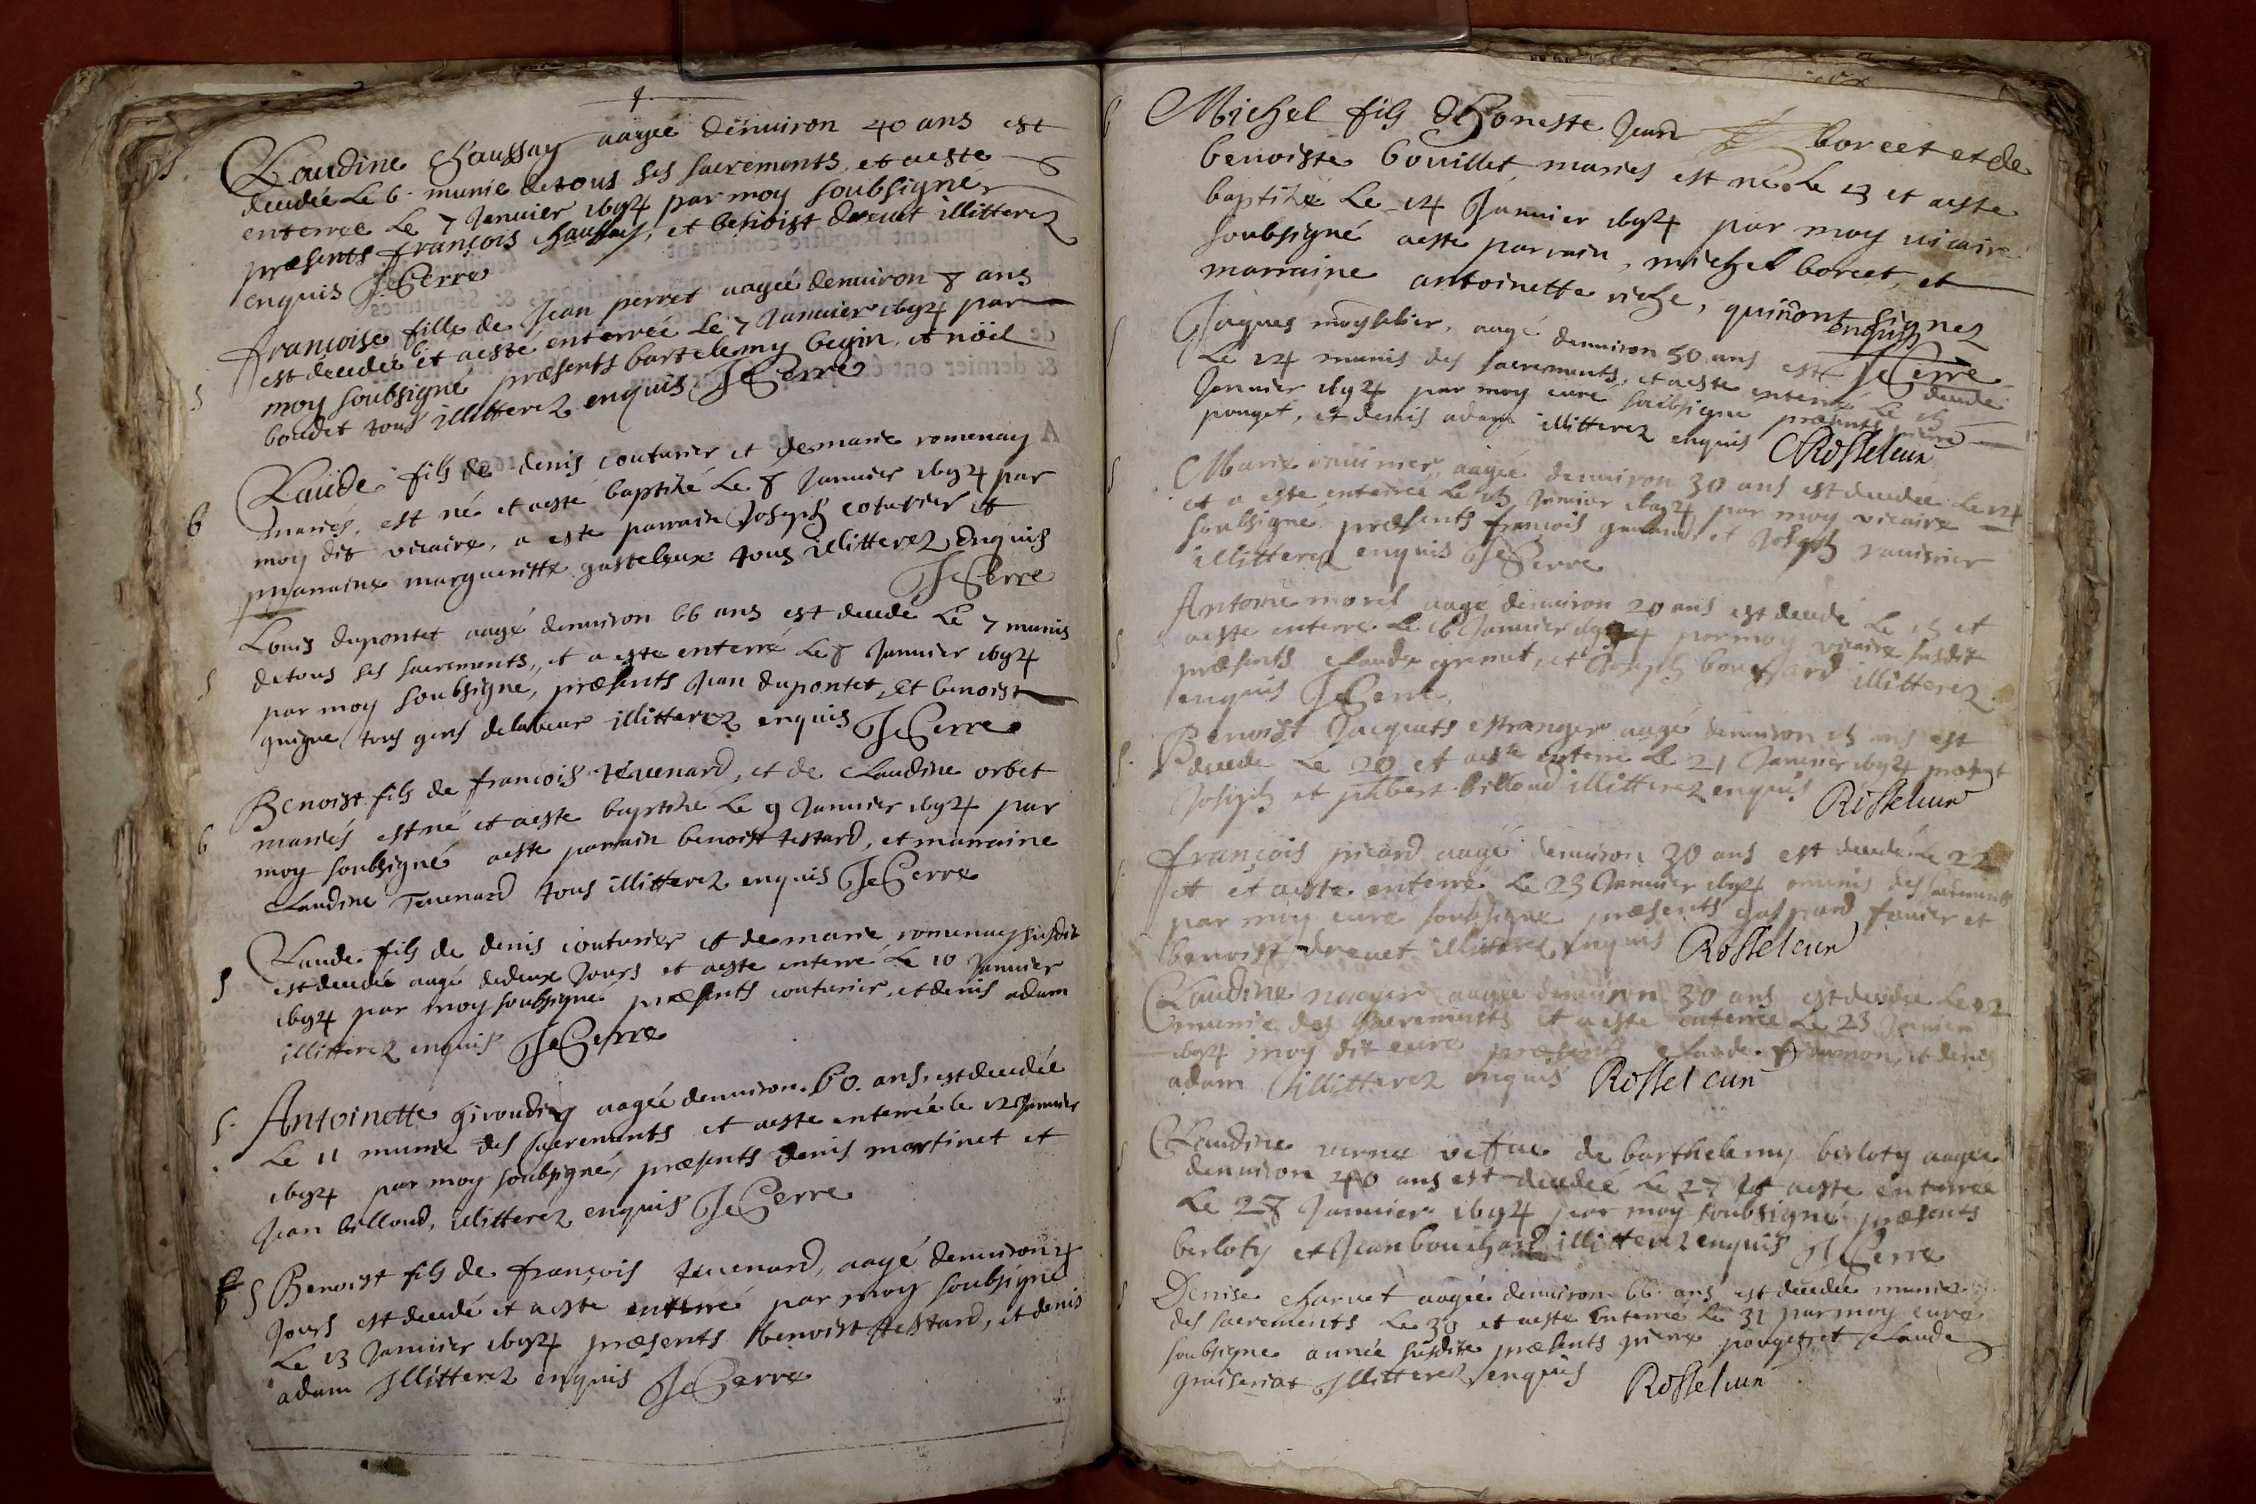 S. Claudine Chaussay aagée denuiron 40 ans est
decedée Le 6. munie de tous ses sacrements, et aesté
enterrée Le 7 Januier 1694 par moy soubsigné
præsents françois chaussay, et benoist dreuet illitterez
enquis JeCerre
S françoise fille de Jean perret aagée denuiron 8 ans
est decedée 6. et aesté enterrée Le 7 Januier 1694 par
moy soubsigné præsents bartelemy begin, et noël
boudet tous illitterez enquis JeCerre
b Claude fils de denis couturier et de marie romenay
mariés, est né et aesté baptizé Le 8 Januier 1694 par
moy dit vicaire, a esté parrain Joseph coturier et
marraine margueritte gasteleux tous illitterez enquis
JeCerre
S Louis dupontet aagé denuiron 66 ans est decedé Le 7 munis
de tous ses sacrements, et a esté enterré Le 8 Januier 1694
par moy soubsigné, præsents Jean dupontet, et benoist
guigue tous gens de labeur illitterez enquis JeCerre
b Benoist fils de francois teuenard, et de Claudine orbet
mariés est né et aesté baptizé Le 9 Januier 1694 par
moy soubsigné aesté parrain benoist testard, et marraine
Claudine Teuenard tous illitterez enquis JeCerre
S Claude fils de denis couturier et de marie romenay susdit
est decedé aagé de deux Jours et aesté enterré Le 10 Januier
1694 par moy soubsigné præsents couturier, et denis adam
illitterez enquis JeCerre
S. Antoinette giroudiey aagée denuiron 60. ans. est decedée
Le 11 munie des sacrements et aesté enterrée le 12 Januier
1694 par moy soubsigné, præsents denis martinet et
Jean billoud, illitterez enquis JeCerre
S Benoist fils de françois teuenard, aagé denuiron 4
Jours est decedé et aesté enterré par moy soubsigné
Le 13 Januier 1694 præsents benoist testard, et denis
adam Jllitterez enquis JeCerre
b Michel fils dhoneste Jean borcet et de
benoiste bouillet, mariés est né Le 13 et aesté
baptizé Le 14 Januier 1694 par moy vicaire
soubsigné aesté parrain, michel borcet, et
marraine antoinette riche, qui nont signez
enquis
JeCerre
S Jaques aagé denuiron 50 ans est decedé
Le 14 munis des sacrements, et aesté enterré Le 15
Januier 1694 par moy curé soubsigné præsents pierre
pouget, et denis adam illitterez enquis Rosseleun
S Marie rauinier, aagée denuiron 30 ans est decedée Le 14
et a esté enterrée Le 15 Januier 1694 par moy vicaire
soubsigné præsents françois et Joseph rauinier
illitterez enquis JeCerre
S Antoine morel aagé denuiron 20 ans est decedé Le 15 et
aesté enterré Le 16 Januier 1694 par moy vicaire susdit
præsents claude grenut, et Joseph illitterez
enquis JeCerre
S. Benoist Jacquets estranger aagé denuiron 15 ans est
decedé Le 20 et aesté enterré Le 21 Januier 1694 præsent
Joseph et philbert billoud illitterez enquis Rosseleun
françois picard aagé denuiron 30 ans est decedé Le 22
et et aesté enterré Le 23 Januier 1694 munis des sacrements
par moy curé soubsigné præsents gaspard et
benoist dreuet illitterez enquis Rosseleun
Claudine aagée denuiron 30 ans est decedée Le 22
munie des sacrements et aesté enterrée Le 23 Januier
1694 moy dit curé præsents claude et denis
adam illitterez enquis Rosseleun
Claudine verne vefue de barthelemy berloty aagée
denuiron 40 ans est decedée Le 27 et aesté enterrée
Le 28 Januier 1694 par moy soubsigné præsents
berloty et Jean bouchard illitterez enquis JeCerre
S Denise charuet aagée denuiron 66 ans est decedée munie
des sacrements Le 30 et aesté enterrée Le 31 par moy curé
soubsigné année susdite præsents pierre pouget, et claude
Jllitterez enquis Rosseleun